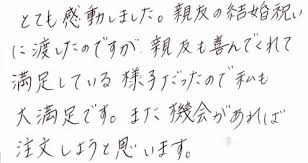 とても感動しました。親友の結婚祝い
に渡したのですが、親友も喜んでくれて
満足している様子だったので私も
大満足です。また機会があれば
注文しようと思います。